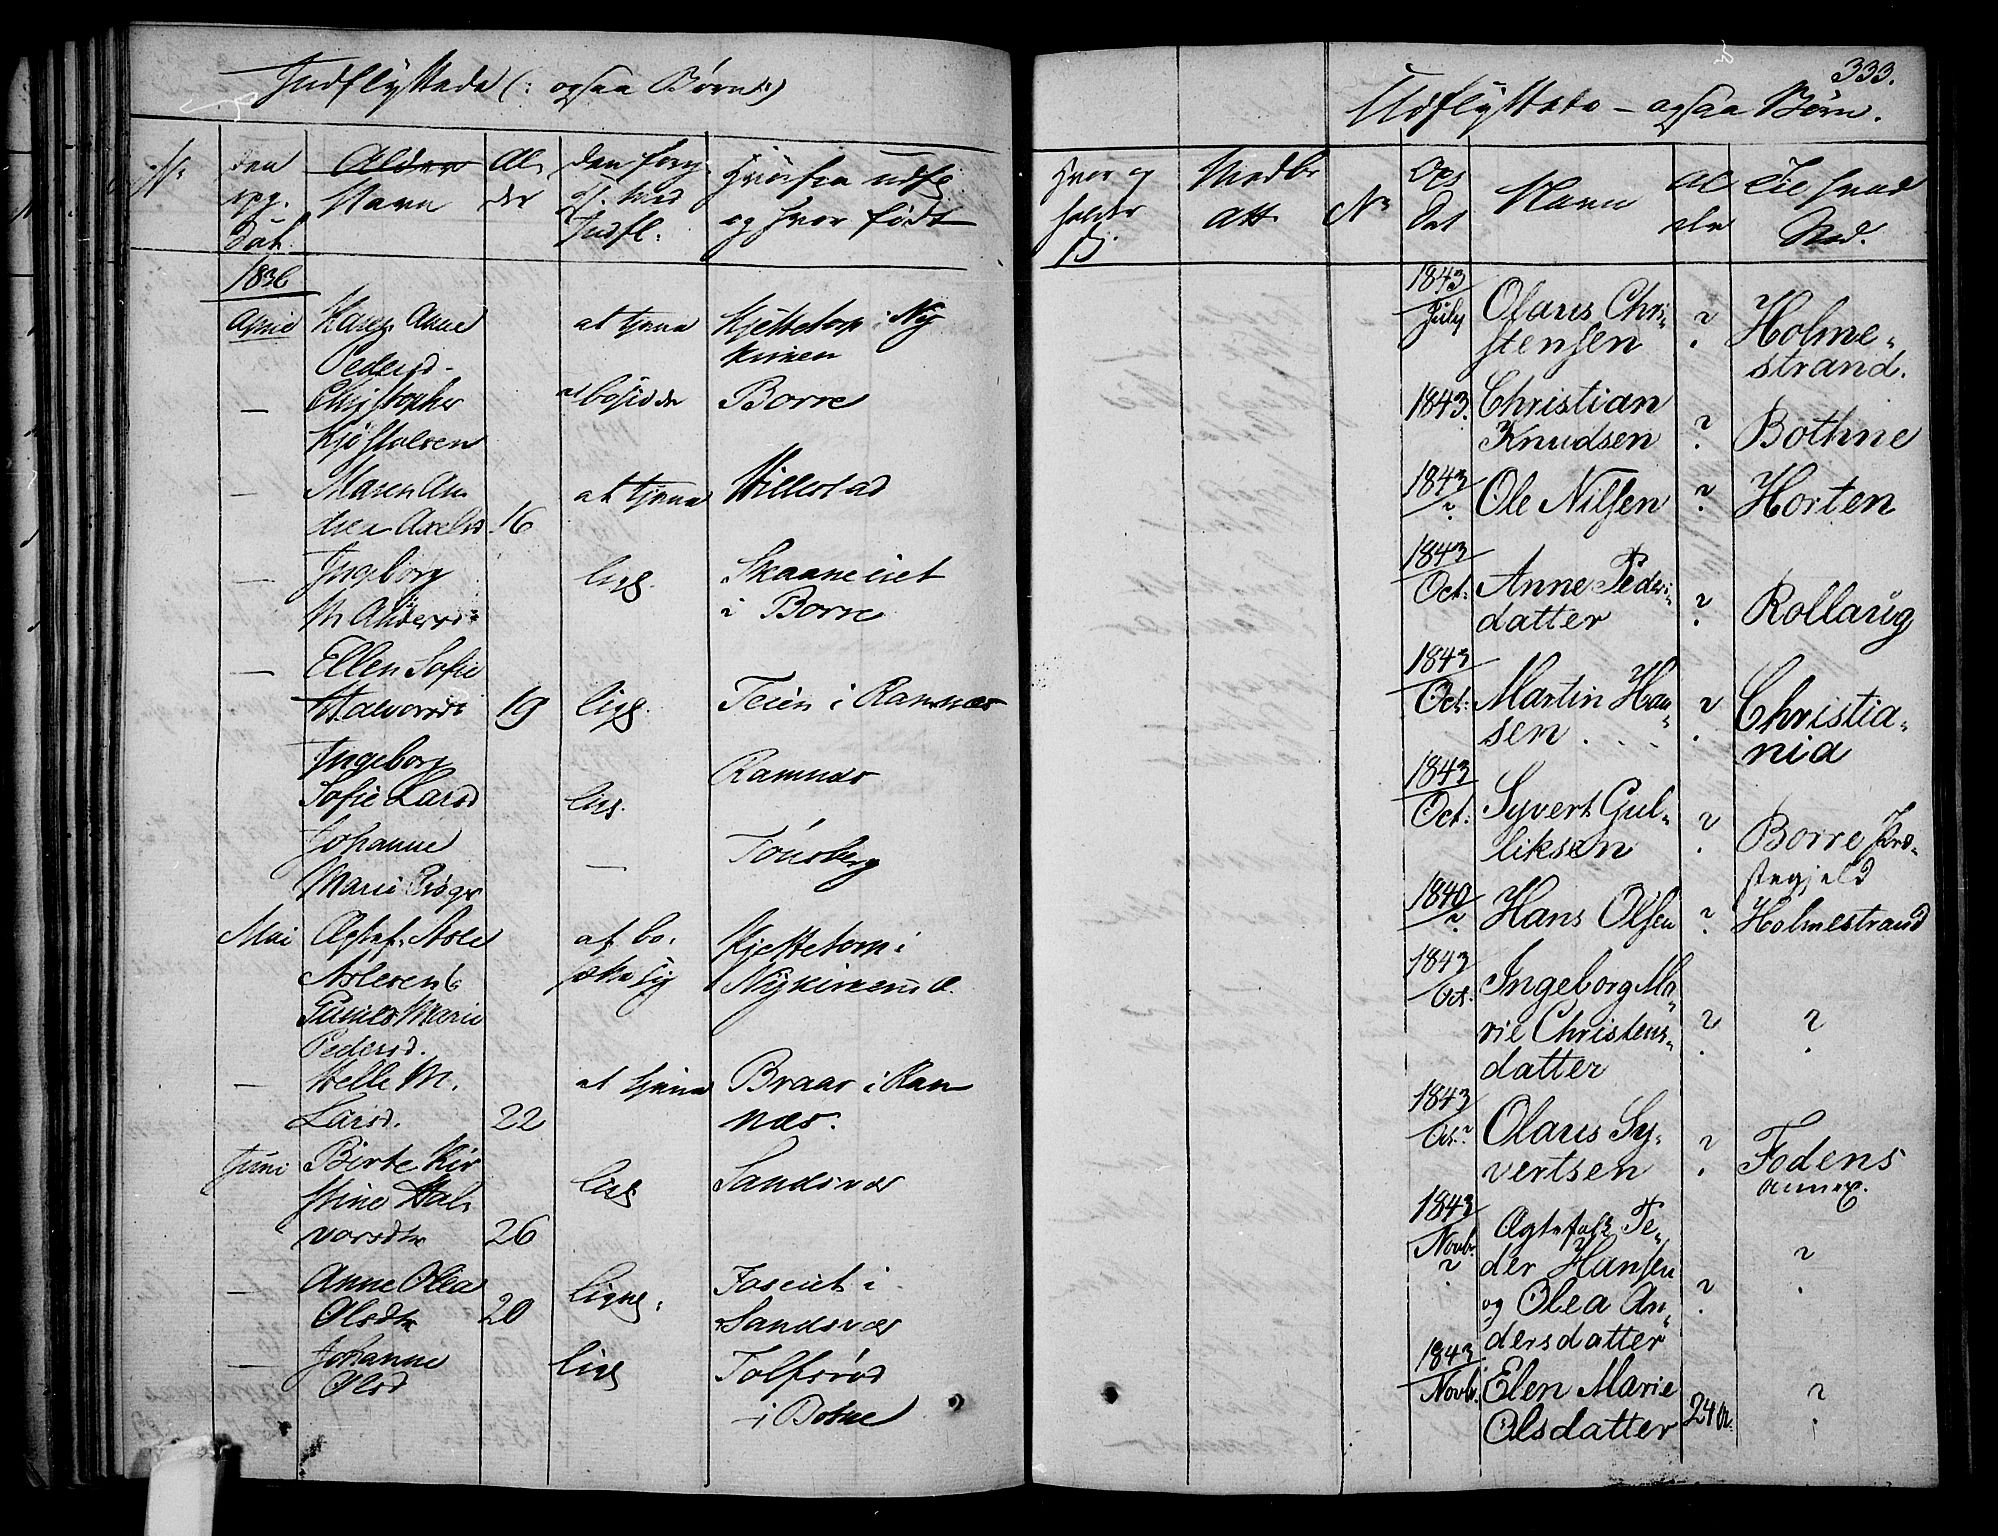 Indflyttede (: ogsaa Børn :)
No
den
opg.
Dat.
Alder
Navn
Al-
der
Indfl:
Hvorfra udfl
og hvor født
1836
April
Karen Anne
Pedersd.
at tjene
Kjettetorp i Ny
kirken
—
Christopher
Kjøstolsen
at bosidde
Borre
—
Maren An
drea Axelsd
16
at tjene
Hillestad
—
Ingeborg
M Andersd:
lige.
Skaane eiet
i Borre
—
Ellen Sofie
Halvorsd:
19
lige.
Teien i Ramnæs
Ingeborg
Sofie Larsd
lige.
Ramnæs
Johanne
Marie
—
Tønsberg
Mai
Ægtef: Asle
Aslesen &
Gunild Marie
Pedersd.
at bo-
sætte sig
Kjettetorp i
Nykirken
—
Helle M.
Larsd.
22
at tjene
Braar i Ram
næs.
Juni
Birte Kir
stine Hal-
vorsdtr
26
lige
Sandsvær
—
Anne Olea
Olsdtr
20
ligne.
Foseiet i
Sandsvær
—
Johanne
Olsd
lige
Tolfsrød
i Botne
333.
Udflyttede – ogsaa Børn.
Hvor og
No
Dat
Navn
Al
der
Til hvad
Sted.
1843
July
Olaus Chri-
stensen
?
Holme-
strand.
1843.
Christian
Knudsen
?
Bothne
1843
?
Ole Nilsen
?
Horten
1843
Oct:
Anne Peders-
datter
?
Rollaug
1843
Oct:
Martin Han-
sen . . . .
?
Christia-
nia
1843
Oct:
Syvert Gul-
liksen
?
Borre Præ-
stegjeld
1840
?
Hans Olsen
?
Holmestrand
1843
Oct.
Ingeborg Ma-
rie Christens-
datter
?
?
1843
Oct. ?
Olaus Sy-
vertsen
?
Fodens
Annex.
1843
Novb.
?
Ægtefolk Pe-
der Hansen
og Olea An-
dersdatter
?
?
1843
Novb.
Elen Marie
Olsdatter
24 A.
?